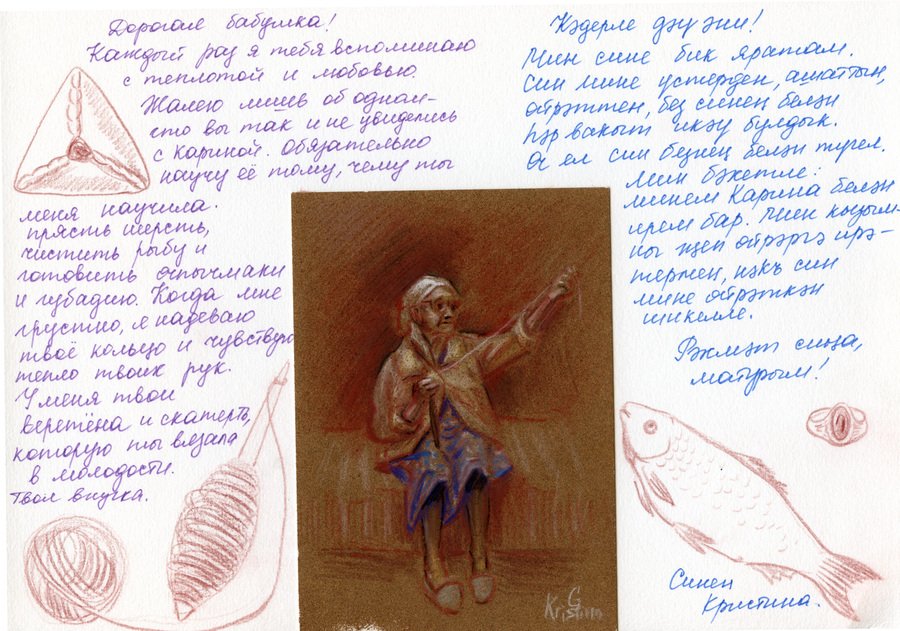 Дорогая бабушка!
Каждый раз я тебя вспоминаю
с теплотой и любовью.
Жалею лишь об одном-
что вы так и не увиделись
с Кариной. Обязательно
научу её тому, чему ты
меня научила.
прясть шерсть,
чистить рыбу и
готовить
и губадию. Когда мне
грустно, я надеваю
твоё кольцо и чувствую
тепло твоих рук.
У меня твои
веретёна и скатерть,
которую ты вязала
в молодости.
Твоя внучка.
Кәдерле дәү әни!
Мин сине бик яратам.
Син мине үстердең, ашаттың,
өйрәттең, без синең белән
һәр вакыт икәү булдык.
ел син безнең белән түгел.
Мин бәхетле:
минем Карина белән
ирем бар. Мин кызым-
ны җеп
термен, нәкъ син
мине өйрәткән
шикелле.
Рәхмәт сиңа,
матурым!
Синең
Кристина.